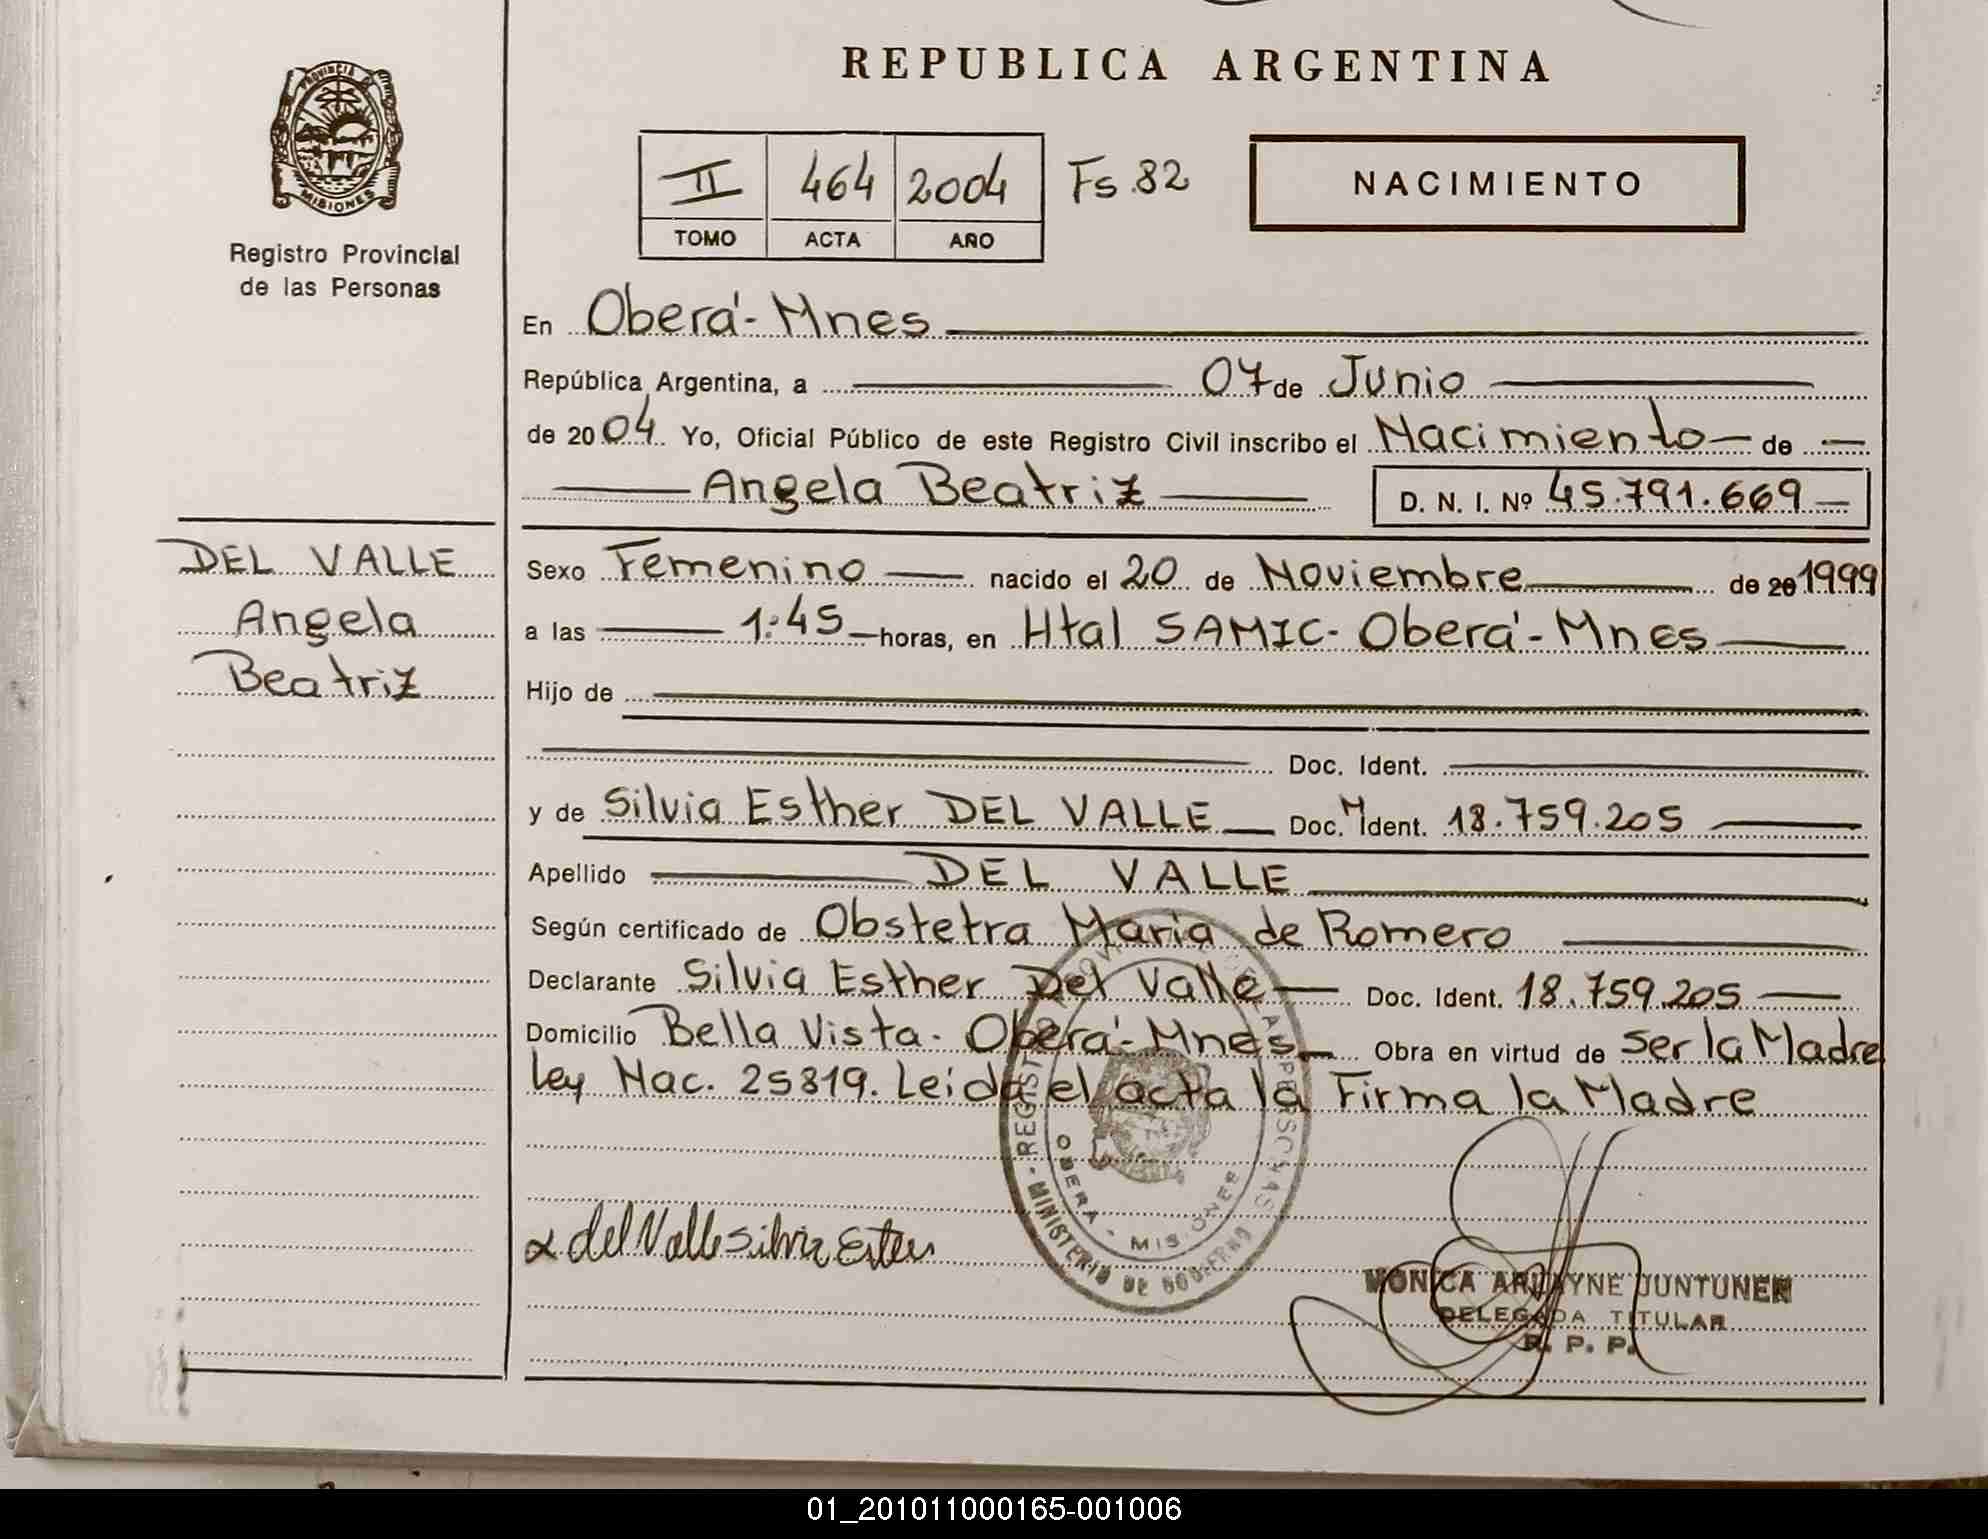 REPUBLICA ARGENTINA
PROVINCIA D
MISIONES
Registro Provincial
de las Personas
II 464 2004 Fs. 82
TOMO ACTA AÑO
NACIMIENTO
En Oberá-Mnes
República Argentina, a 07 de Junio
de 2004. Yo, Oficial Público de este Registro Civil inscribo el Nacimiento de
Angela Beatriz D. N. I. Nº 45.791.669
DEL VALLE
Angela
Beatriz
Sexo Femenino nacido el 20 de Noviembre de 20 1999
a las 1:45 horas, en Htal SAMIC- Oberá-Mnes
Hijo de
Doc. Ident.
y de Silvia Esther DEL VALLE Doc. M Ident. 18.759.205
Apellido DEL VALLE
Según certificado de Obstetra Maria de Romero
Declarante Silvia Esther Del Valle Doc. Ident. 18.759.205
Domicilio Bella Vista. Oberá-Mnes Obra en virtud de ser la Madre
Ley Nac. 25819. Leida el acta la Firma la Madre
del Valle Silvia Ester
OBERA - MISIONES
MINISTERIO DE GOBIERNO
MONICA ARLAYNE JUNTUNEN
DELEGADA TITULAR
R. P. P.
01_201011000165-001006